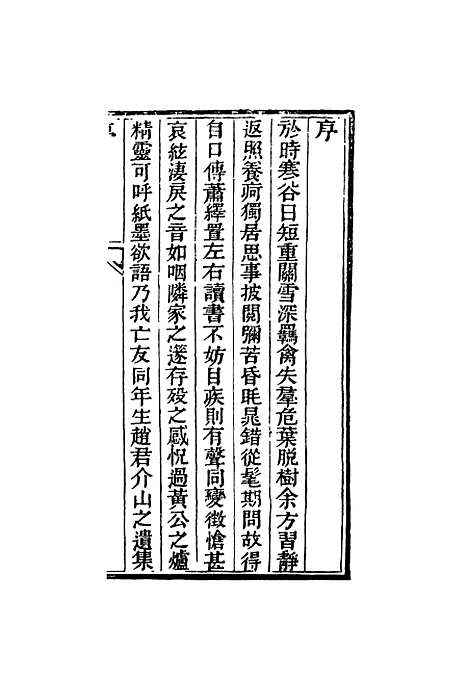 序
於時寒谷日短重關雪深羈禽失羣危葉脫樹余方習靜
返照養疴獨居思事披閱彌苦昏眊晁錯從髦期問故得
自口傳蕭繹置左右讀書不妨目疾則有聲同變徵愴甚
哀絃淒戾之音如咽隣家之邃存歿之感怳過黃公之爐
精靈可呼紙墨欲語乃我亡友同年生趙君介山之遺集